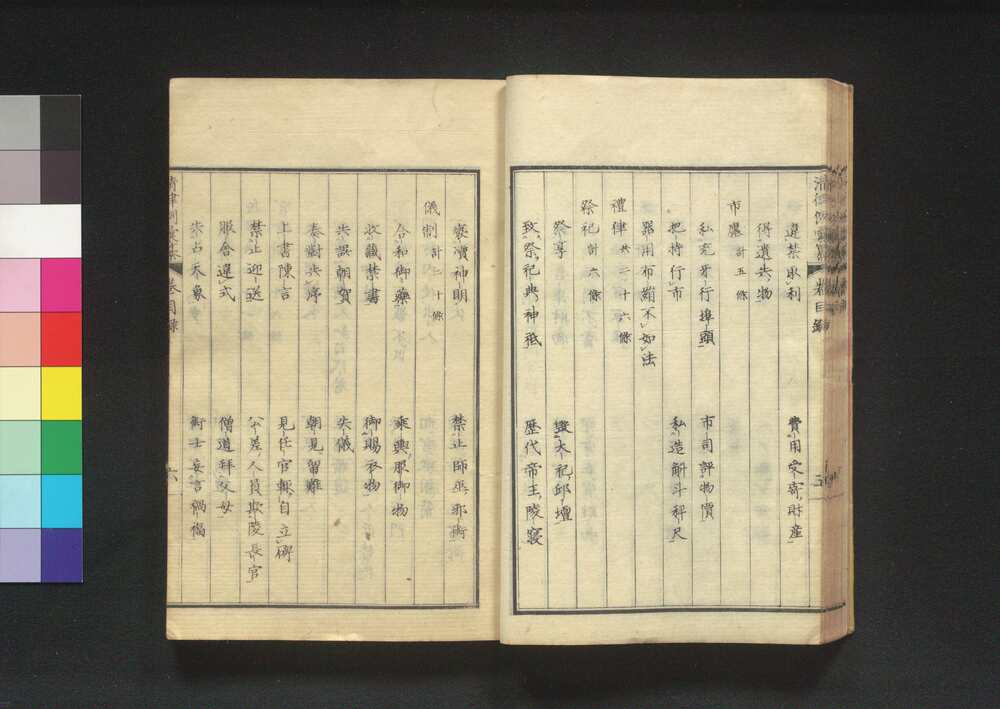 違禁取利　費用受寄財産
得遺失物
市廛 計五條
私充牙行埠頭　市司評物價
把持行市　私造斛斗秤尺
器用布絹不如法
禮律 共二十六條
祭祀 計六條
祭享　毀大祀邱壇
致祭祀典神祗　歴代帝王陵寝
褻瀆神明　禁止師巫邪術
儀制 計二十條
合和御藥　乘輿服御物
收藏禁書　御賜衣物
失誤朝賀　失儀
奏對失序　朝見留難
上書陳言　見任官輒自立碑
禁止迎送　公差人員欺陵長官
服舍違式　僧道拜父母
失占天象　術士妄言禍福
卷目録　六